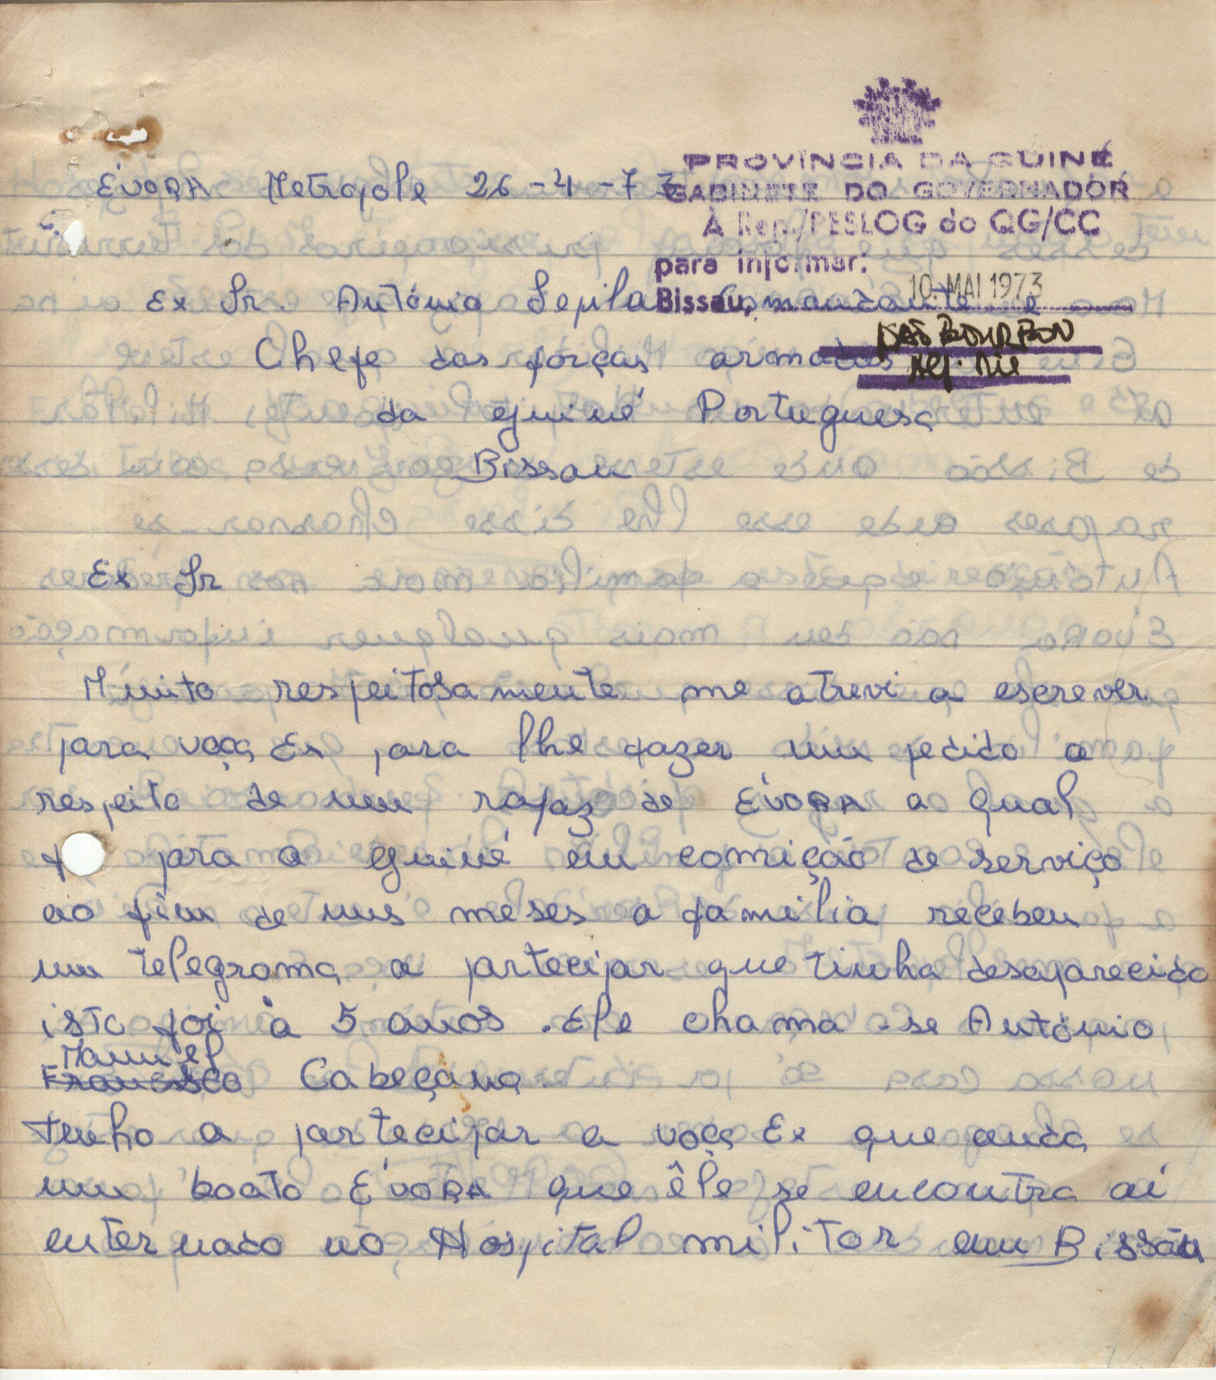 PROVÍNCIA DA GUINÉ
GABINETE DO GOVERNADOR
À Rep./PESLOG do QG/CC
para informar:
Bissau, 10. MAI 1973
ÉVORA Metropole 26-4-73
Ex Sr António Sepila Comandante e
Chefe das forças armadas
da guiné Portuguesa
Bissau
Ex Sr
Múito respeitosamente me atrevi a escrever
para voça Ex para lhe fazer um pedido a
respeito de um rapaz de ÉVORA a qual
para a guiné em comição de serviço
ao fim de uns meses a familia recebeu
um telegrama a partecipar que tinha desaparecido
isto foi à 5 anos . Ele chama-se António
Manuel
Francisco Cabeçana
tenho a partecipar a voça Ex que anda
um boato ÉVORA que êle se encontra aí
enternado no Hospital militar em Bissau